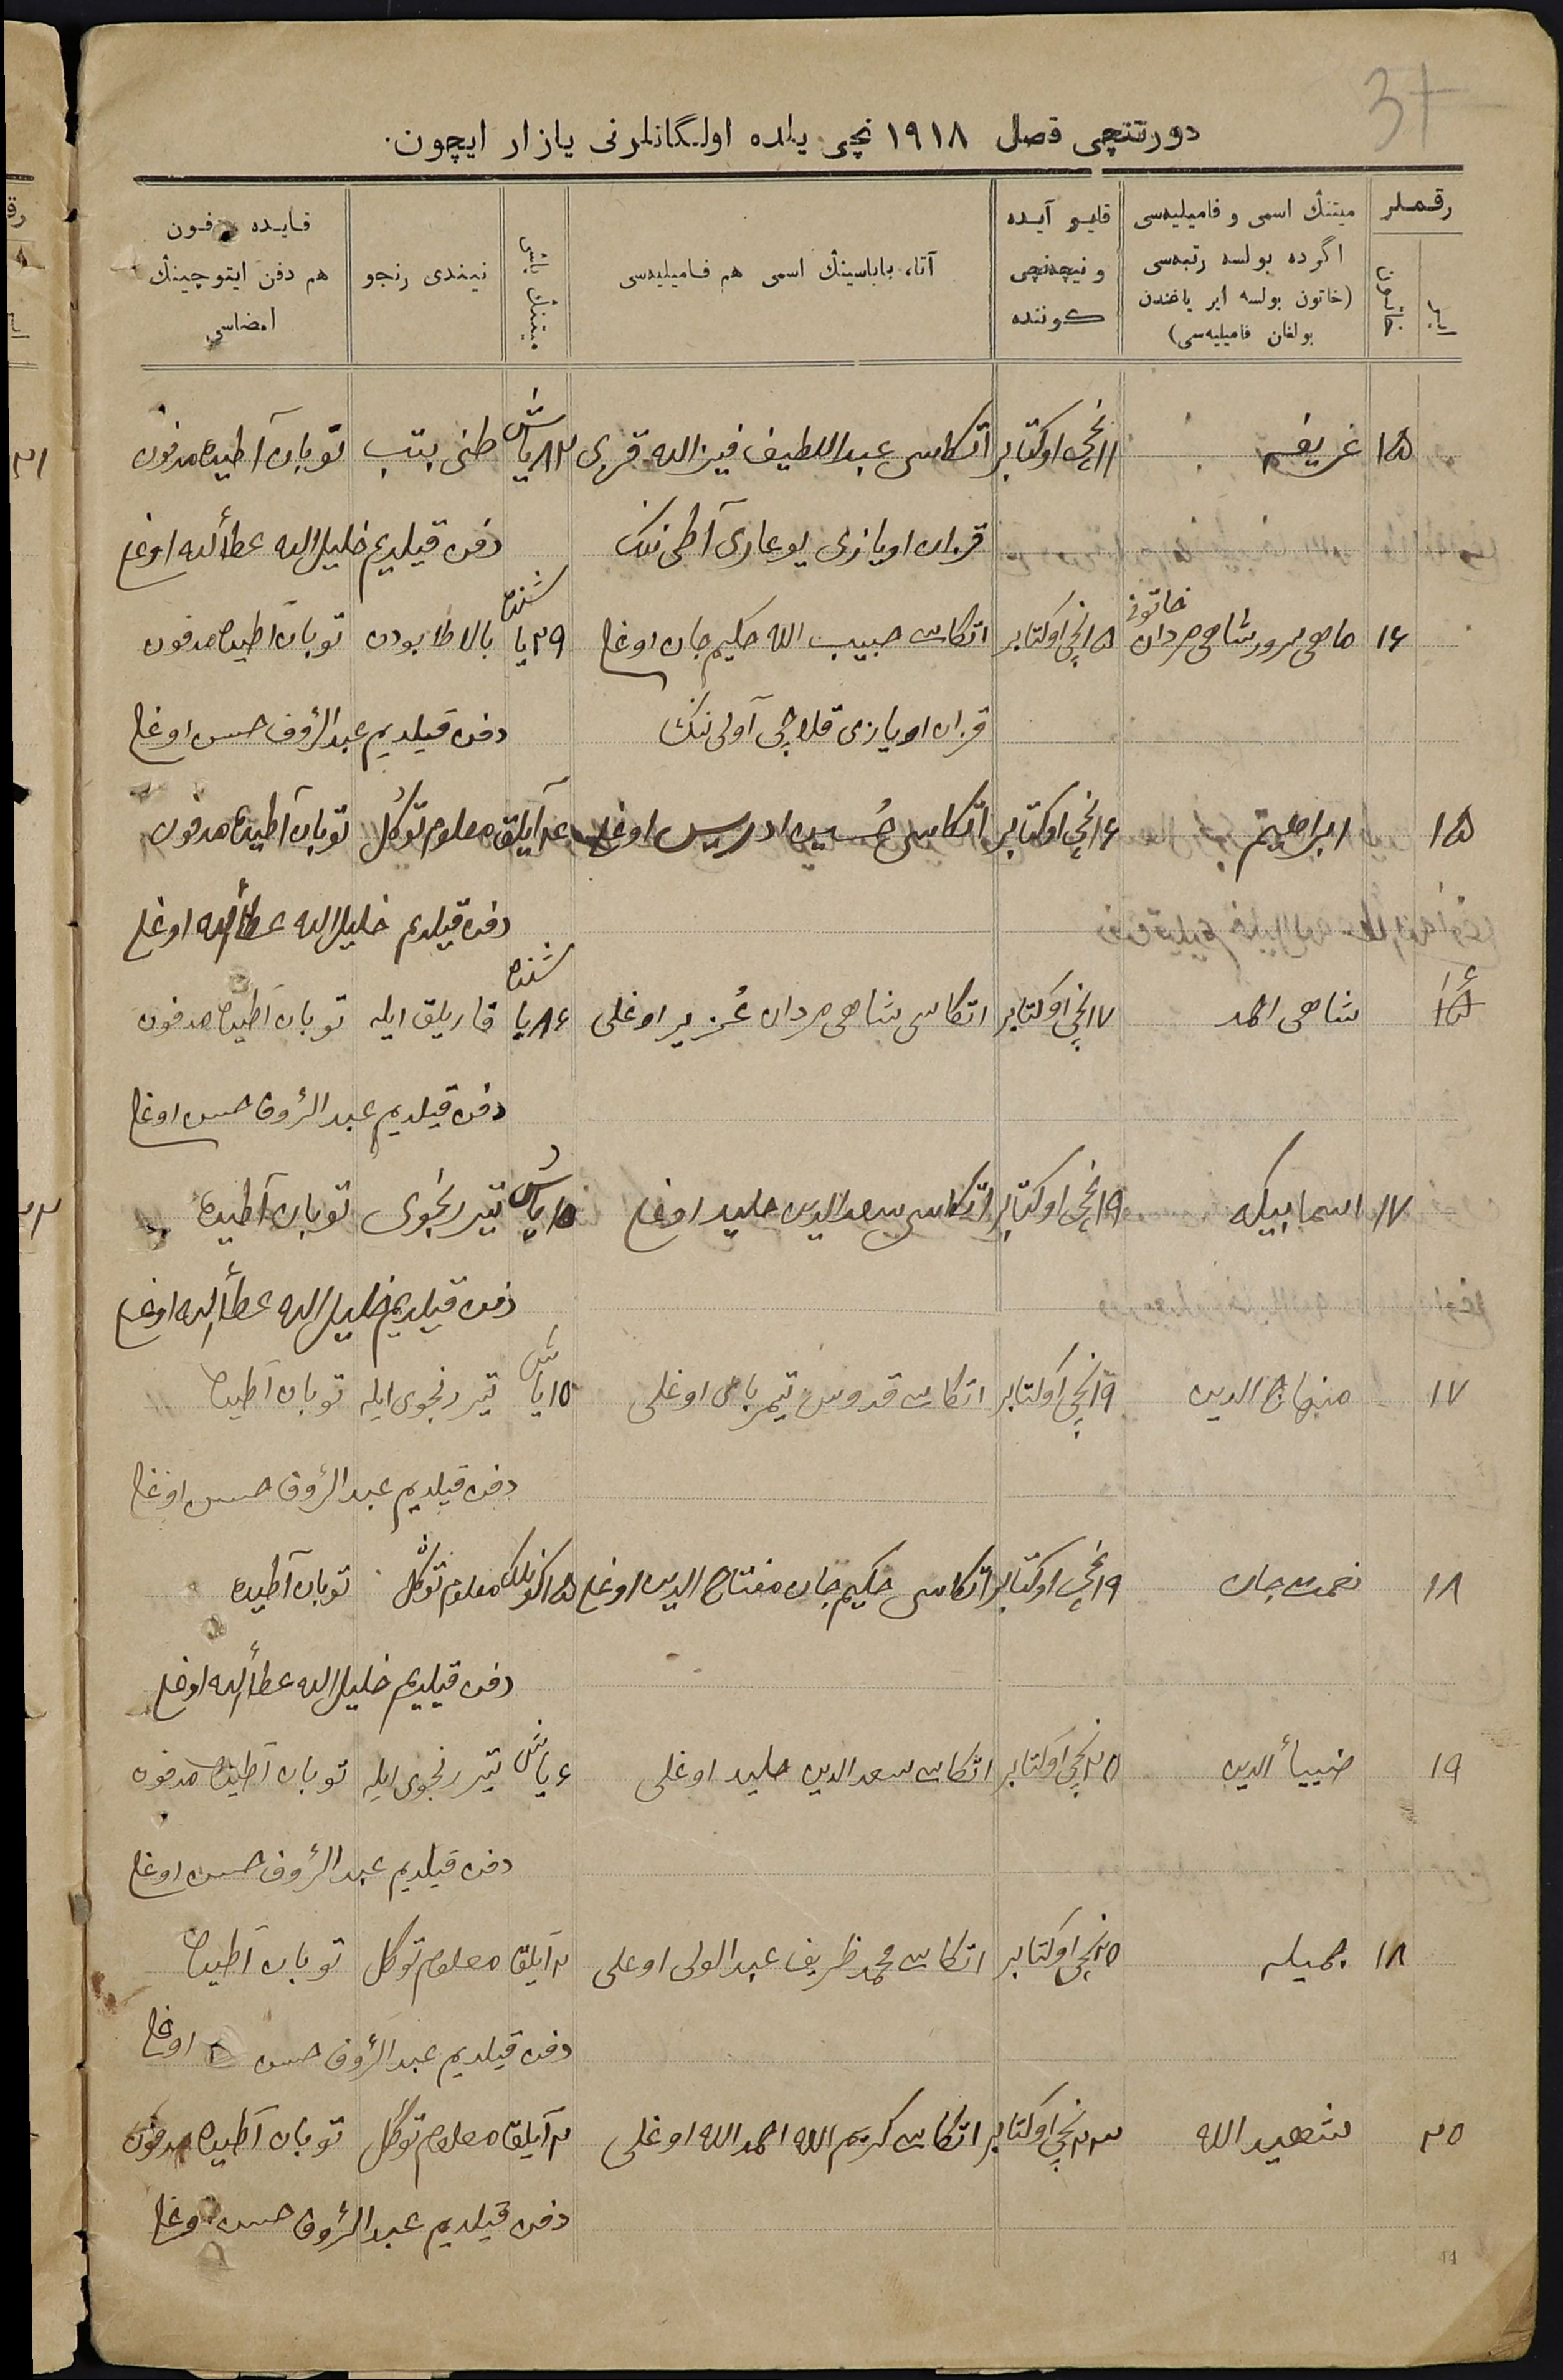 37
دورتنچی فصل ۱۹۱۸ نچی یلده اولگانلرنی یازار ایچون.
رقملر
ایر
خاتون
میتنڭ اسمی و فامیلیه‌سی اگرده بولسه رتبه‌سی (خاتون بولسه ایر یاغندن بولغان فامیلیه‌سی)
قایو آیده و نیچه‌نچی کوننده
آتا، باباسینڭ اسمی هم فامیلیه‌سی
میتنڭ یاشی
نیندی رنجو
قایده مدفون هم دفن ایتوچینڭ امضاسی
۱۵ ۱۱نچی اوکتابر اتکاسی عبداللطیف فیض الله ۸۲ یاش توبان آطیده مدفون
قزان اویازی یوغاری آطی ننک دفن قیلدیم خلیل الله عطأالله اوغلی
۱۶ ماهی سرور شاهی مردان خاتونی ۱۵نچی اوکتابر اتکاسی حبیب الله حکیم جان اوغلی ۲۹ یاشنده بالا طابودن توبان آطیده مدفون
قزان اویازی قلاچی آولی ننک دفن قیلدیم عبد الرؤف حسن اوغلی
۱۵ ابراهیم ۱۶نچی اوکتابر اتکاسی حسین ادریس اوغلی آیلق معلوم توگل توبان آطیده مدفون
دفن قیلدیم خلیل الله عطأالله اوغلی
۱۶ شاهی احمد ۱۷نچی اوکتابر اتکاسی شاهی مردان عزیر اوغلی ۸۶ یاشنده قاریلق ایله توبان آطیده مدفون
دفن قیلدیم عبد الرؤف حسن اوغلی
۱۷ اسما بیکه ۱۹نچی اوکتابر اتکاسی سعد الدین اوغلی ۱۵ یاش تیر رنجوی توبان آطیده
دفن قیلدیم خلیل الله عطأالله اوغلی
۱۷ منهاج الدین ۱۹نچی اوکتابر اتکاسی قدوس تیمربای اوغلی ۱۵ یاش تیر رنجوی ایله توبان آطیده
دفن قیلدیم عبد الرؤف حسن اوغلی
۱۸ نعمت جان ۱۹نچی اوکتابر اتکاسی حکیم جان مفتاح الدین اوغلی ۱۵ کونلک معلوم توگل توبان آطیده
دفن قیلدیم خلیل الله عطأالله اوغلی
۱۹ ضیأ الدین ۲۰نچی اوکتابر اتکاسی سعد الدین اوغلی ۶ یاش تیر رنجوی ایله توبان آطیده مدفون
دفن قیلدیم عبد الرؤف حسن اوغلی
۱۸ جمیله ۲۰نچی اوکتابر اتکاسی محمد ظریف عبد الولی اوغلی ۲ آیلق معلوم توگل توبان آطیده
دفن قیلدیم عبد الرؤف حسن اوغلی
۲۰ شهید الله ۲۳نچی اوکتابر اتکاسی کریم الله احمد الله اوغلی ۲ آیلق معلوم توگل توبان آطیده مدفون
دفن قیلدیم عبد الرؤف حسن اوغلی